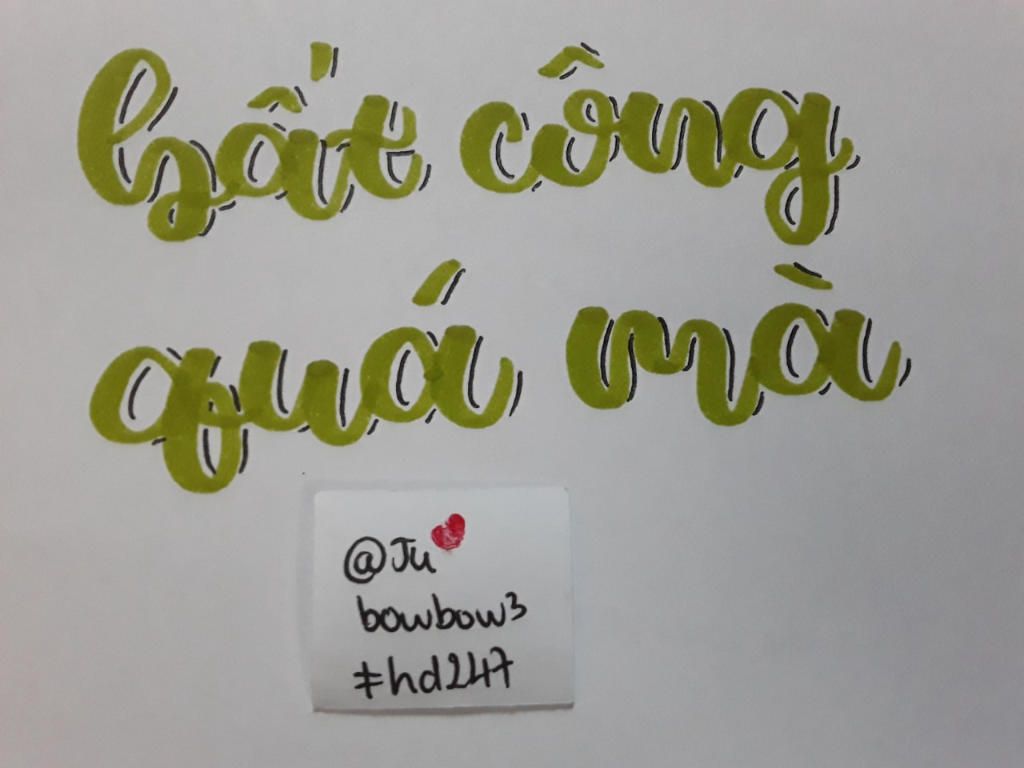 bất công
quá mà
@Ju
bowbow3
#hd247